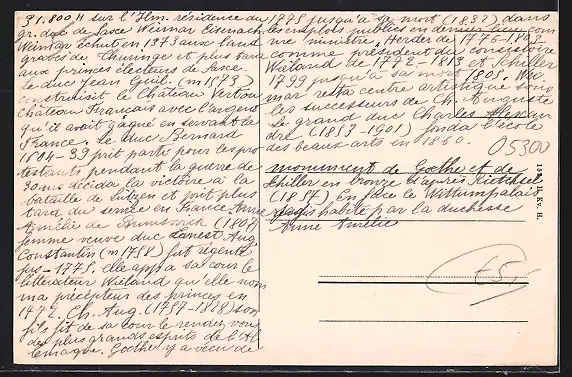 31.800 H sur l'Ilm. résidence du
gr. duc de Saxe Weimar Eisenach
Weimar échut en 1373 aux land
graves de Thuringe et plus tard
aux princes électeurs de Saxe
Le duc Jean Guil. (m 1573)
construisit le Château Vert ou
Château Français avec l'argent
qu'il avait gagné en servant la
France. Le duc Bernard
1604-39 prit parti pour les pro
testants pendant la guerre de
30 ans décida la victoire à la
bataille de Lützen et prit plus
tard du service en France. Anne
Amélie de Brunswick (1807)
femme veuve duc Ernest Aug.
Constantin (m 1758) fut régente
jus-1775. elle appela à sa cour le
littérateur Wieland qu'elle nom
ma précepteur des princes en
1772. Ch. Aug. (1757-1828) son
fils fit de sa cour le rendez vous
des plus grands esprits de l'Al
lemagne. Goethe y a vécu de
1775 jusqu'à sa mort (1832) dans
les emplois publics en dernier lieu com
me ministre. Herder de 1776-1803
comme président du consistoire
Wieland de 1772-1813 et Schiller
1799 jusqu'à sa mort 1805. Wei
mar resta centre artistique sous
les successeurs de Ch. Auguste
Le grand duc Charles Alexan
dre (1853-1901) fonda l'école
des beaux arts en 1860.
05300
monument de Goethe et de
Schiller en bronze d'après Rietschel
(1857) En face le Wittumspalais
habité par la duchesse
Anne Amélie
H. Kv. H.
£5,-